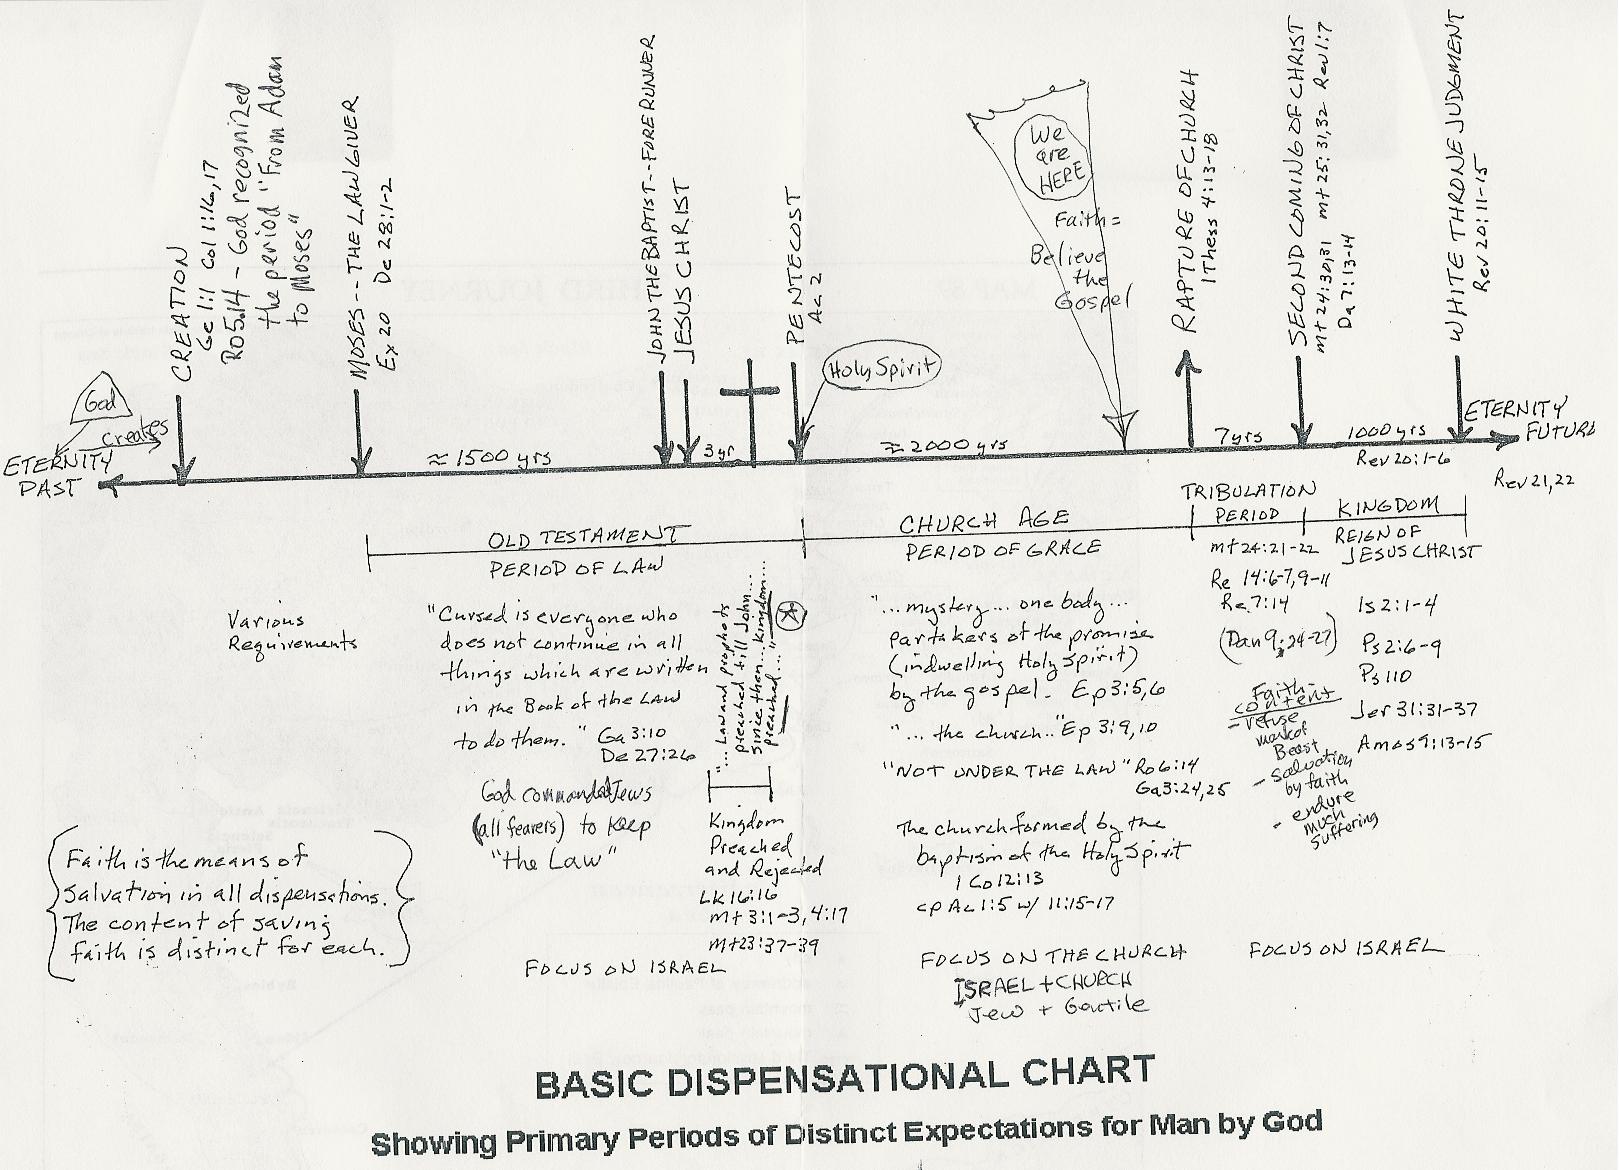 CREATION
Ge 1:1 Col 1:16,17
Ro 5:14 - God recognized
the period "From Adam
to Moses"
MOSES -- THE LAWGIVER
Ex 20 De 28:1-2
JOHN THE BAPTIST -- FORERUNNER
JESUS CHRIST
PENTECOST
Ac 2
Holy Spirit
We
are
HERE
Faith =
Believe
the
Gospel
RAPTURE OF CHURCH
1 Thess 4:13-18
SECOND COMING OF CHRIST
Mt 24:30,31 Mt 25:31,32 Rev 1:7
Da 7:13-14
WHITE THRONE JUDGMENT
Rev 20:11-15
God
creates
ETERNITY
PAST
≈ 1500 yrs
3 yr
≈ 2000 yrs
7 yrs
1000 yrs
Rev 20:1-6
ETERNITY
FUTURE
Rev 21,22
OLD TESTAMENT
PERIOD OF LAW
CHURCH AGE
PERIOD OF GRACE
TRIBULATION
PERIOD
KINGDOM
REIGN OF
JESUS CHRIST
Various
Requirements
"Cursed is everyone who
does not continue in all
things which are written
in the Book of the Law
to do them." Ga 3:10
De 27:26
God commanded Jews
(all fearers) to keep
"the Law"
"...Law and prophets
preached till John...
Since then...Kingdom...
preached..."
Kingdom
Preached
and Rejected
Lk 16:16
Mt 3:1-3, 4:17
Mt 23:37-39
FOCUS ON ISRAEL
"...mystery... one body...
partakers of the promise
(indwelling Holy Spirit)
by the gospel. Ep 3:5,6
"...the church.." Ep 3:9,10
"NOT UNDER THE LAW" Ro 6:14
Ga 3:24,25
The church formed by the
baptism of the Holy Spirit
1 Co 12:13
cp Ac 1:5 w/ 11:15-17
FOCUS ON THE CHURCH
ISRAEL + CHURCH
Jew + Gentile
Mt 24:21-22
Re 14:6-7,9-11
Re 7:14
(Dan 9:24-27)
Faith-
content
- refuse
mark of
Beast
- Salvation
by faith
- endure
much
suffering
Is 2:1-4
Ps 2:6-9
Ps 110
Jer 31:31-37
Amos 9:13-15
FOCUS ON ISRAEL
Faith is the means of
salvation in all dispensations.
The content of saving
faith is distinct for each.
BASIC DISPENSATIONAL CHART
Showing Primary Periods of Distinct Expectations for Man by God